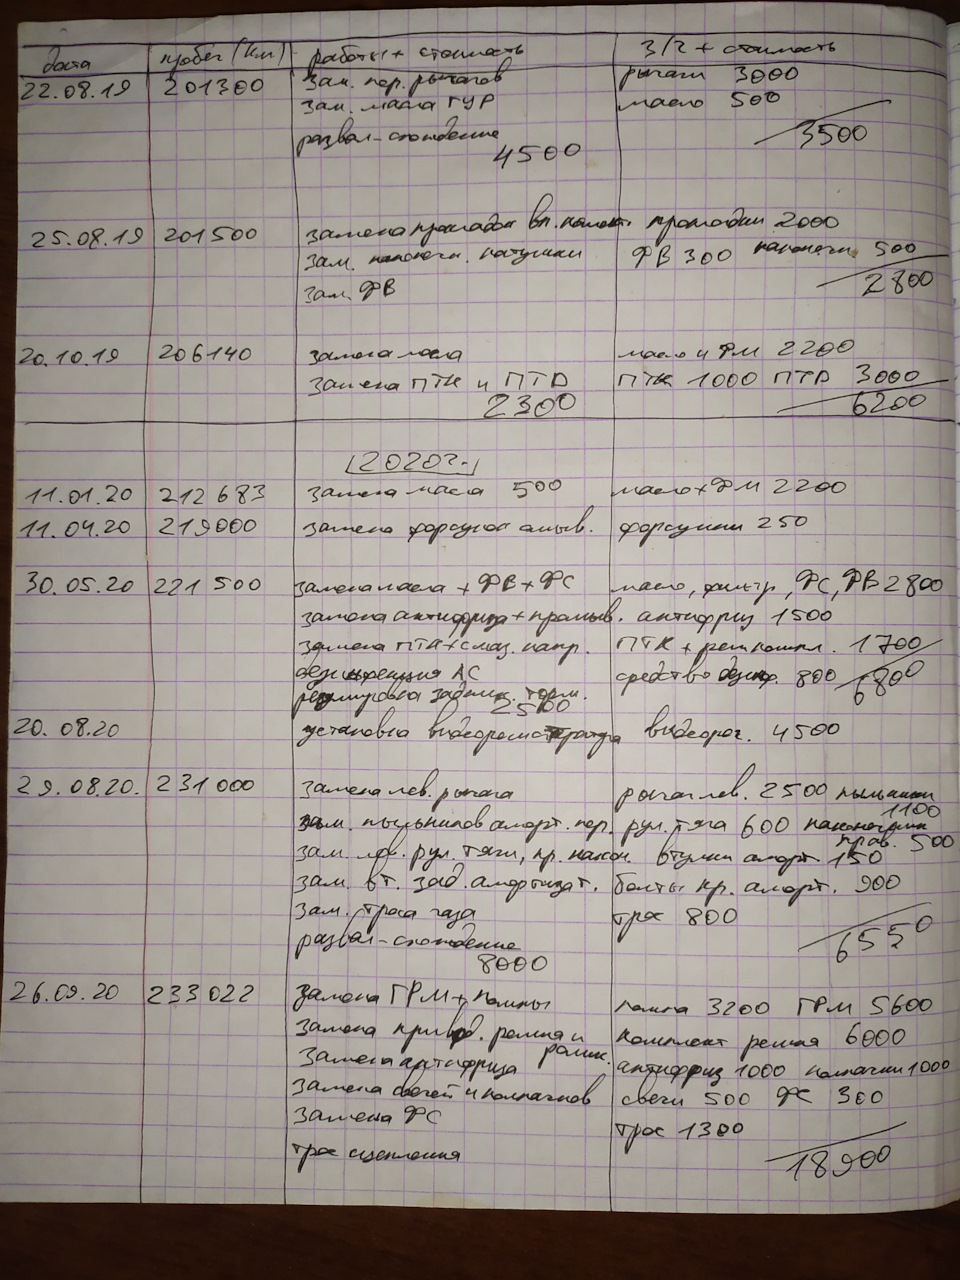 дата пробег (км) работы + стоимость З/Ч + стоимость
22.08.19 201300 Зам. пер. рычагов рычаги 3000
Зам. масла ГУР масло 500
развал-схождение 3500
4500
25.08.19 201500 Замена прокладок вп. коллект. прокладки 2000
Зам. наконечн. катушки ФВ 300 наконечн. 500
Зам. ФВ 2800
20.10.19 206140 Замена масла масло и ФМ 2200
Замена ПТК и ПТД ПТК 1000 ПТД 3000
2300 6200
2020г.
11.01.20 212683 Замена масла 500 масло+ФМ 2200
11.04.20 219000 Замена форсунок омыв. форсунки 250
30.05.20 221500 Замена масла + ФВ + ФС масло, фильтр, ФС, ФВ 2800
Замена антифриза + промыв. антифриз 1500
Замена ПТК+смаз. напр. ПТК + ремкомпл. 1700
дезинфекция АС средство дезинф. 800 6800
регулировка задних торм.
2500
20.08.20 установка видеорегистратора видеорег. 4500
29.08.20. 231000 Замена лев. рычага рычаг лев. 2500 пыльники
1100
зам. пыльников аморт. пер. рул. тяга 600 наконечник
прав. 500
Зам. лев. рул. тяги, пр. након. втулки аморт 150
Зам. вт. зад. амортизат. болты кр. аморт. 900
Зам. троса газа трос 800
развал-схождение 6550
8000
26.09.20 233022 Замена ГРМ + помпы помпа 3200 ГРМ 5600
Замена привод. ремня и комплект ремня 6000
ролик.
Замена антифриза антифриз 1000 колпачки 1000
Замена свечей и колпачков свечи 500 ФС 300
Замена ФС трос 1300
трос сцепления 18900